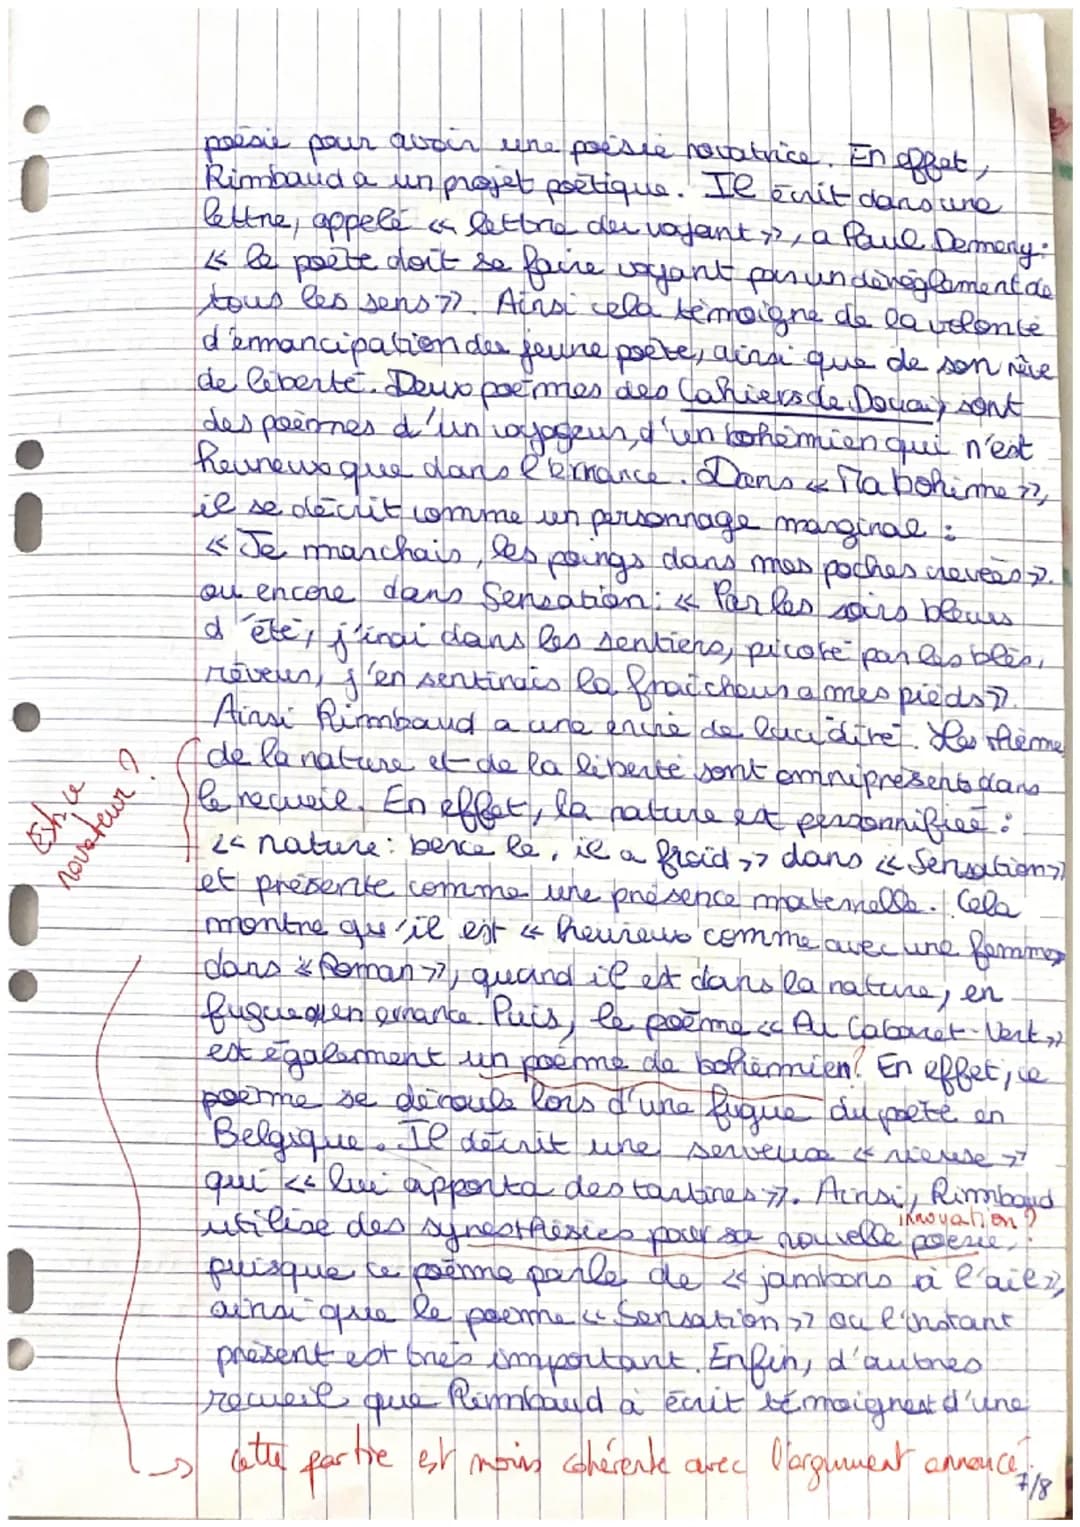 poésie pour avoir une poésie novatrice. En effet,
Rimbaud a un projet poétique. Il écrit dans une
lettre, appelé « lettre du voyant », a Paul Demeny :
« le poète doit se faire voyant par un dérèglement de
tous les sens ». Ainsi cela témoigne de la volonté
d'émancipation du jeune poète, ainsi que de son rêve
de liberté. Deux poèmes des Cahiers de Douai sont
des poèmes d'un voyageur, d'un bohémien qui n'est
heureux que dans l'errance. Dans « Ma bohème »,
il se décrit comme un personnage marginal :
« Je marchais, les poings dans mes poches crevées ».
ou encore dans Sensation : « Par les soirs bleus
d'été, j'irai dans les sentiers, picoté par les blés,
rêveur, j'en sentirais la fraîcheur a mes pieds ».
Ainsi Rimbaud a une envie de lucidité. Les thème
de la nature et de la liberté sont omniprésents dans
le recueil. En effet, la nature est personnifiée :
Est-ce
novateur ?
« nature : berce le, il a froid » dans « Sensation »
et présente comme une présence maternelle. Cela
montre qu'il est « heureux comme avec une femme »
dans « Roman », quand il est dans la nature, en
fugue en errance. Puis, le poème « Au Cabaret-Vert »
est également un poème de bohémien ? En effet, ce
poème se déroule lors d'une fugue du poète en
Belgique. Il décrit une serveuse « rieuse »
qui « lui apporta des tartines ». Ainsi, Rimbaud
innovation ?
utilise des synesthésies pour sa nouvelle poésie,
puisque ce poème parle de « jambons à l'ail »,
ainsi que le poème « Sensation » ou l'instant
présent est très important. Enfin, d'autres
recueil que Rimbaud à écrit témoignent d'une
→ cette partie est moins cohérente avec l'argument annoncé.
7/8